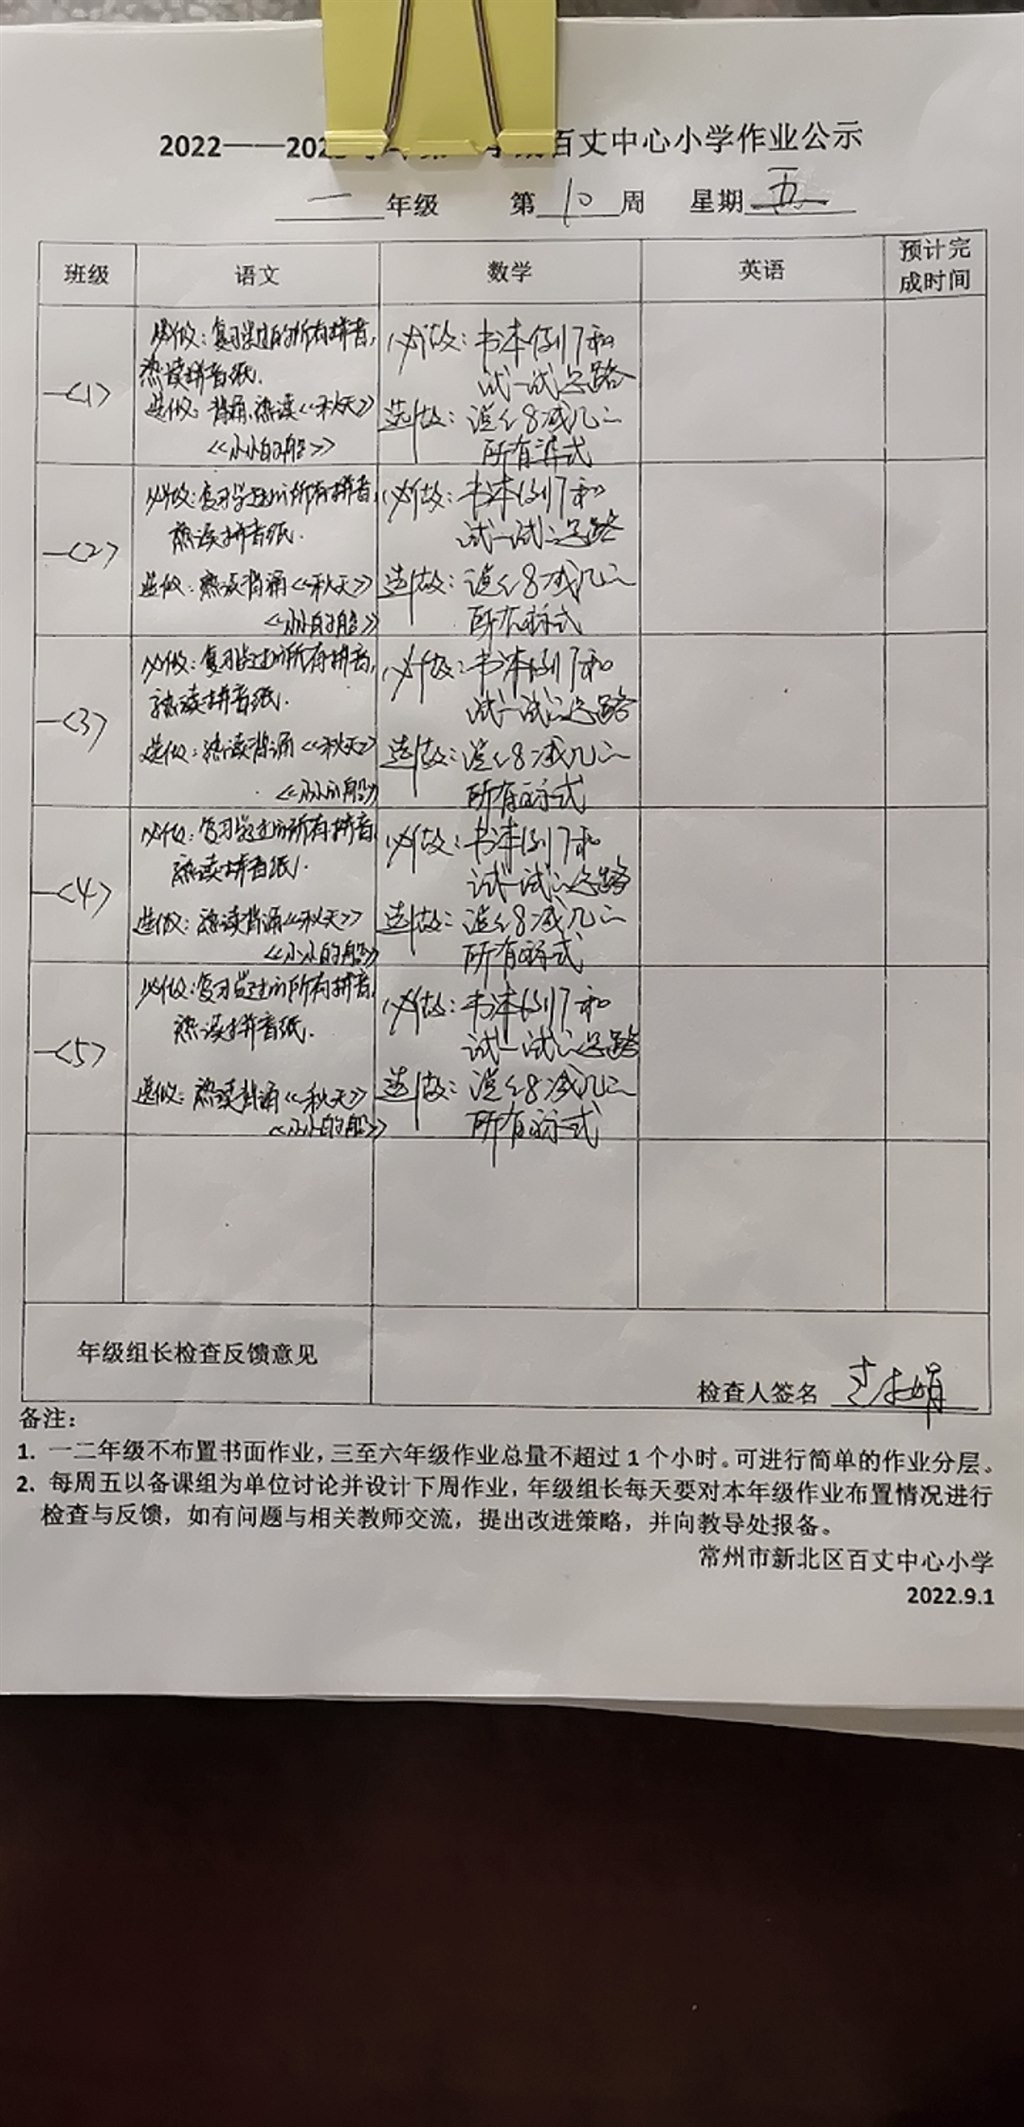 2022——202 百丈中心小学作业公示
一 年级 第 10 周 星期 五
班级 语文 数学 英语 预计完成时间
一(1)
必做：复习学过的所有拼音，
熟读拼音纸.
选做：背诵，熟读《秋天》
《小小的船》
必做：书本例7和
试一试说思路
选做：说<8减几>
所有算式
一(2)
必做：复习学过的所有拼音，
熟读拼音纸.
选做：熟读背诵《秋天》
《小小的船》
必做：书本例7和
试一试说思路
选做：说<8减几>
所有算式
一(3)
必做：复习学过的所有拼音，
熟读拼音纸.
选做：熟读背诵《秋天》
《小小的船》
必做：书本例7和
试一试说思路
选做：说<8减几>
所有算式
一(4)
必做：复习学过的所有拼音，
熟读拼音纸.
选做：熟读背诵《秋天》
《小小的船》
必做：书本例7和
试一试说思路
选做：说<8减几>
所有算式
一(5)
必做：复习学过的所有拼音，
熟读拼音纸.
选做：熟读背诵《秋天》
《小小的船》
必做：书本例7和
试一试说思路
选做：说<8减几>
所有算式
年级组长检查反馈意见
检查人签名
备注：
1. 一二年级不布置书面作业，三至六年级作业总量不超过 1 个小时。可进行简单的作业分层。
2. 每周五以备课组为单位讨论并设计下周作业，年级组长每天要对本年级作业布置情况进行
检查与反馈，如有问题与相关教师交流，提出改进策略，并向教导处报备。
常州市新北区百丈中心小学
2022.9.1